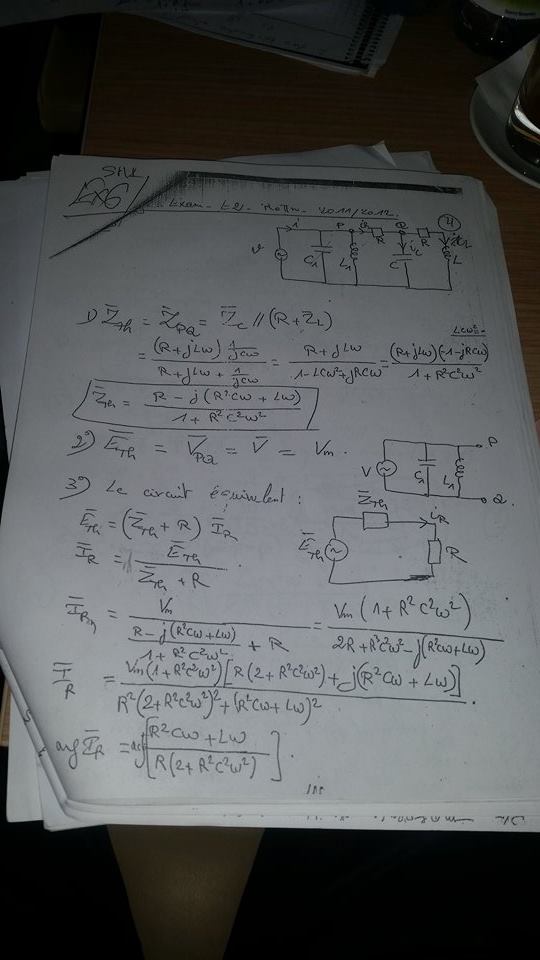 SHU
Exo6
Exam - E2 - Mottn - 2011/2012.
4
P iR Q R iL
v i C1 L1 R iC C L
1) Z̄Th = Z̄PQ = Z̄C // (R + Z̄L)
LCω² =
= (R + jLω) 1/jCω / (R + jLω + 1/jCω) = (R + jLω) / (1 - LCω² + jRCω) = (R + jLω)(-1 - jRCω) / (1 + R²C²ω²)
Z̄Th = (R - j(R²Cω + Lω)) / (1 + R²C²ω²)
2) ĒTh = V̄PQ = V̄ = Vm.
V C1 L1 P Q
3) Le circuit équivalent :
ĒTh = (Z̄Th + R) ĪR
ĪR = ĒTh / (Z̄Th + R)
Z̄Th iR ĒTh R
ĪR = Vm / ((R - j(R²Cω + Lω)) / (1 + R²C²ω²) + R) = Vm (1 + R²C²ω²) / (2R + R³C²ω² - j(R²Cω + Lω))
ĪR = Vm (1 + R²C²ω²) [R(2 + R²C²ω²) + j(R²Cω + Lω)] / (R²(2 + R²C²ω²)² + (R²Cω + Lω)²)
arg ĪR = arctg [(R²Cω + Lω) / (R(2 + R²C²ω²))].